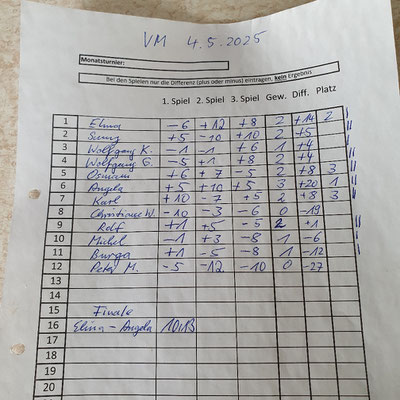 VM 4.5.2025
Monatsturnier:
Bei den Spielen nur die Differenz (plus oder minus) eintragen, kein Ergebnis
1. Spiel 2. Spiel 3. Spiel Gew. Diff. Platz
1 Elina -6 +12 +8 2 +14 2
2 +5 -10 +10 2 +5
3 Wolfgang K. -1 -1 +6 1 +4
4 Wolfgang G. -5 +1 +8 2 +4
5 Osmani +6 +7 -5 2 +8 3
6 Angela +5 +10 +5 3 +20 1
7 Karl +10 -7 +5 2 +8 3
8 Christiane W. -10 -3 -6 0 -19
9 Rolf +1 +5 -5 2 +1
10 Michel -1 +3 -8 1 -6
11 Burga +1 -5 -8 1 -12
12 Peter M. -5 -12 -10 0 -27
13
14
15 Finale
16 Elina - Angela 10:13
17
18
19
20